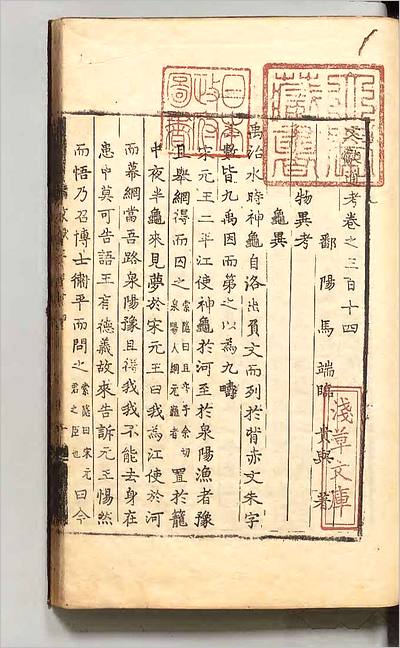 文獻通考卷之三百十四
鄱陽馬端臨貴與著
物異考
龜異
禹治水時神龜自洛出負文而列於背赤文朱字
數皆九禹因而第之以為九疇
宋元王二年江使神龜於河至於泉陽漁者豫
且舉網得而囚之索隱曰且音子余切泉陽人網元龜者置於籠
中夜半龜來見夢於宋元王曰我為江使於河
而幕網當吾路泉陽豫且得我我不能去身在
患中莫可告語王有德義故來告訴元王惕然
而悟乃召博士衛平而問之索隱曰宋元君之臣也曰今
日本政府圖書
藏書
淺草文庫